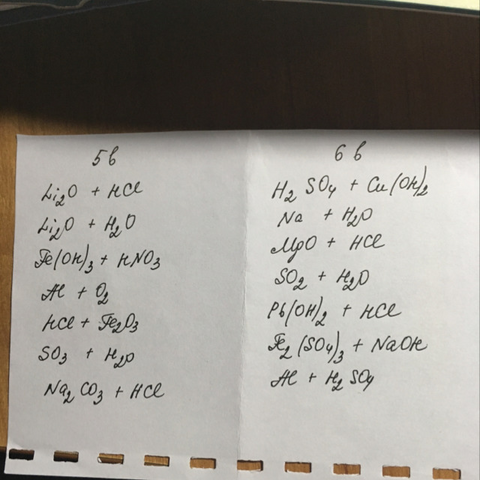 5 в
Li₂O + HCl
Li₂O + H₂O
Fe(OH)₃ + HNO₃
Al + O₂
HCl + Fe₂O₃
SO₃ + H₂O
Na₂CO₃ + HCl
6 в
H₂SO₄ + Cu(OH)₂
Na + H₂O
MgO + HCl
SO₂ + H₂O
Pb(OH)₂ + HCl
Fe₂(SO₄)₃ + NaOH
Al + H₂SO₄